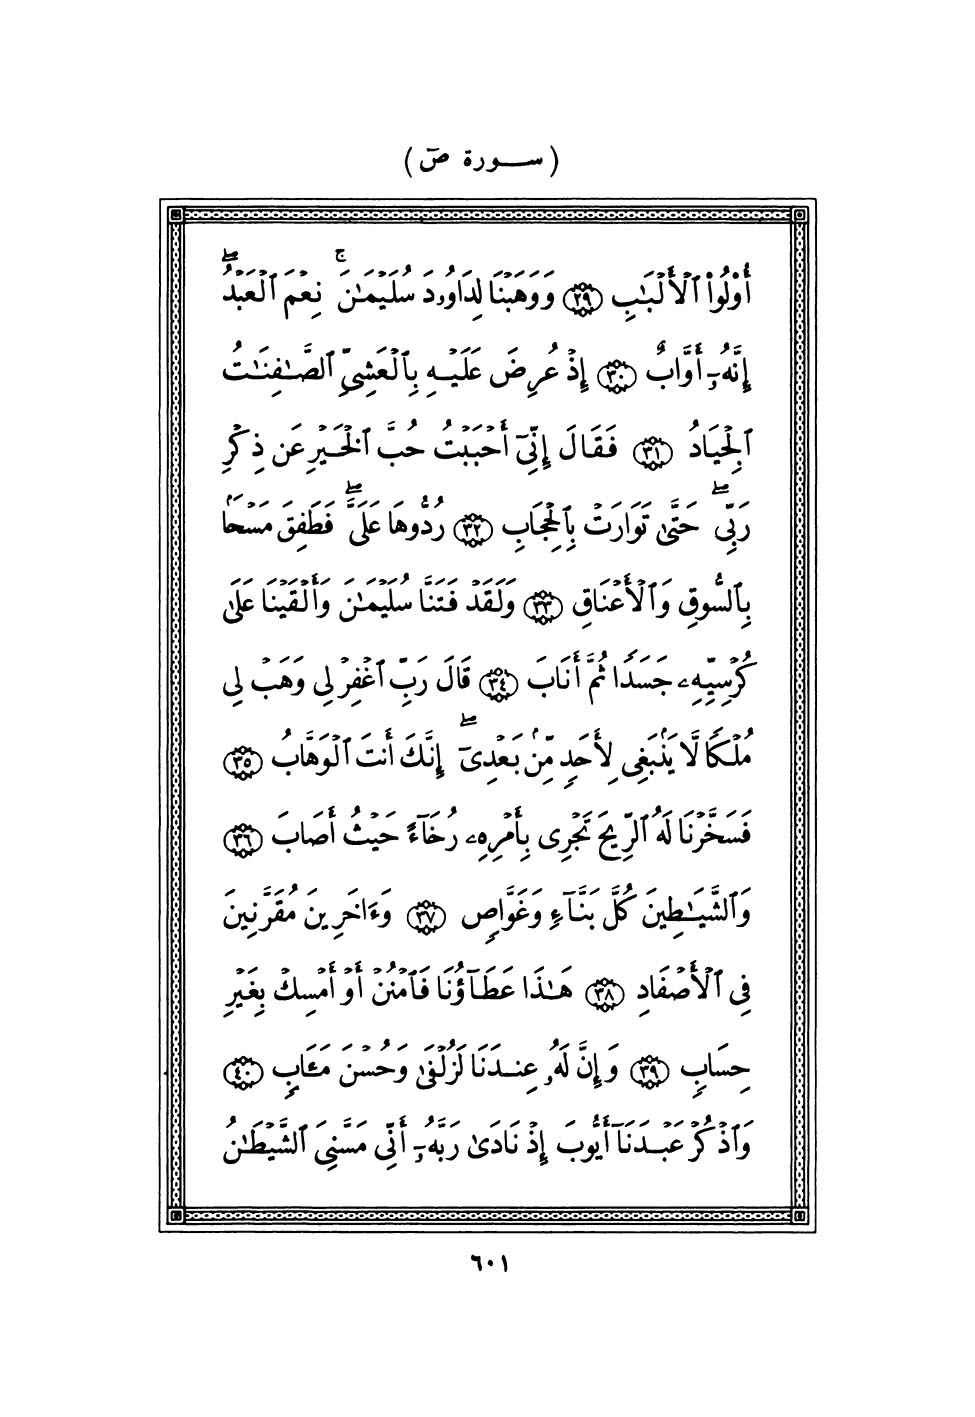 ( ســورة صٓ )
أُوْلُواْ ٱلْأَلْبَٰبِ ۝٢٩ وَوَهَبْنَا لِدَاوُۥدَ سُلَيْمَٰنَۚ نِعْمَ ٱلْعَبْدُۖ
إِنَّهُۥٓ أَوَّابٌ ۝٣٠ إِذْ عُرِضَ عَلَيْهِ بِٱلْعَشِىِّ ٱلصَّٰفِنَٰتُ
ٱلْجِيَادُ ۝٣١ فَقَالَ إِنِّىٓ أَحْبَبْتُ حُبَّ ٱلْخَيْرِ عَن ذِكْرِ
رَبِّىۖ حَتَّىٰ تَوَارَتْ بِٱلْحِجَابِ ۝٣٢ رُدُّوهَا عَلَىَّۖ فَطَفِقَ مَسْحَۢا
بِٱلسُّوقِ وَٱلْأَعْنَاقِ ۝٣٣ وَلَقَدْ فَتَنَّا سُلَيْمَٰنَ وَأَلْقَيْنَا عَلَىٰ
كُرْسِيِّهِۦ جَسَدًا ثُمَّ أَنَابَ ۝٣٤ قَالَ رَبِّ ٱغْفِرْ لِى وَهَبْ لِى
مُلْكًا لَّا يَنۢبَغِى لِأَحَدٍ مِّنۢ بَعْدِىٓۖ إِنَّكَ أَنتَ ٱلْوَهَّابُ ۝٣٥
فَسَخَّرْنَا لَهُ ٱلرِّيحَ تَجْرِى بِأَمْرِهِۦ رُخَآءً حَيْثُ أَصَابَ ۝٣٦
وَٱلشَّيَٰطِينَ كُلَّ بَنَّآءٍ وَغَوَّاصٍ ۝٣٧ وَءَاخَرِينَ مُقَرَّنِينَ
فِى ٱلْأَصْفَادِ ۝٣٨ هَٰذَا عَطَآؤُنَا فَٱمْنُنْ أَوْ أَمْسِكْ بِغَيْرِ
حِسَابٍ ۝٣٩ وَإِنَّ لَهُۥ عِندَنَا لَزُلْفَىٰ وَحُسْنَ مَـَٔابٍ ۝٤٠
وَٱذْكُرْ عَبْدَنَآ أَيُّوبَ إِذْ نَادَىٰ رَبَّهُۥٓ أَنِّى مَسَّنِىَ ٱلشَّيْطَٰنُ
٦٠١